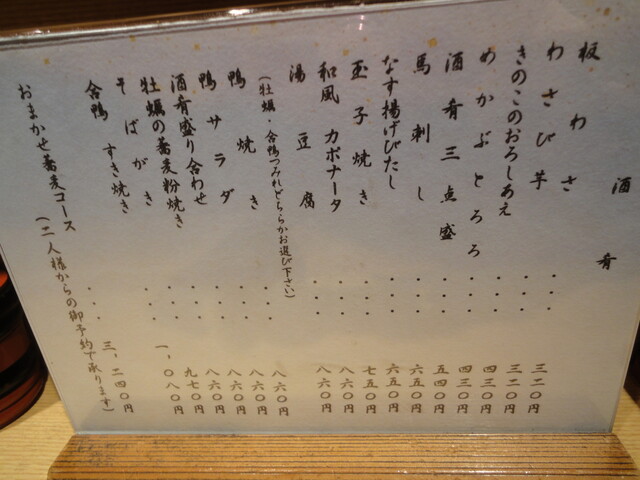 酒肴
板わさ
わさび芋
きのこのおろしあえ
めかぶとろろ
酒肴三点盛
馬刺し
なす揚げびたし
玉子焼き
和風カポナータ
湯豆腐
(牡蠣・合鴨つみれどちらかお選び下さい)
鴨焼き
鴨サラダ
酒肴盛り合わせ
牡蠣の蕎麦粉焼き
そばがき
合鴨すき焼き
おまかせ蕎麦コース (二人様からの御予約で承ります)
三二〇円
三二〇円
四三〇円
四三〇円
五四〇円
六五〇円
六五〇円
七五〇円
八六〇円
八六〇円
八六〇円
八六〇円
八六〇円
八六〇円
九七〇円
一、〇八〇円
三、二四〇円